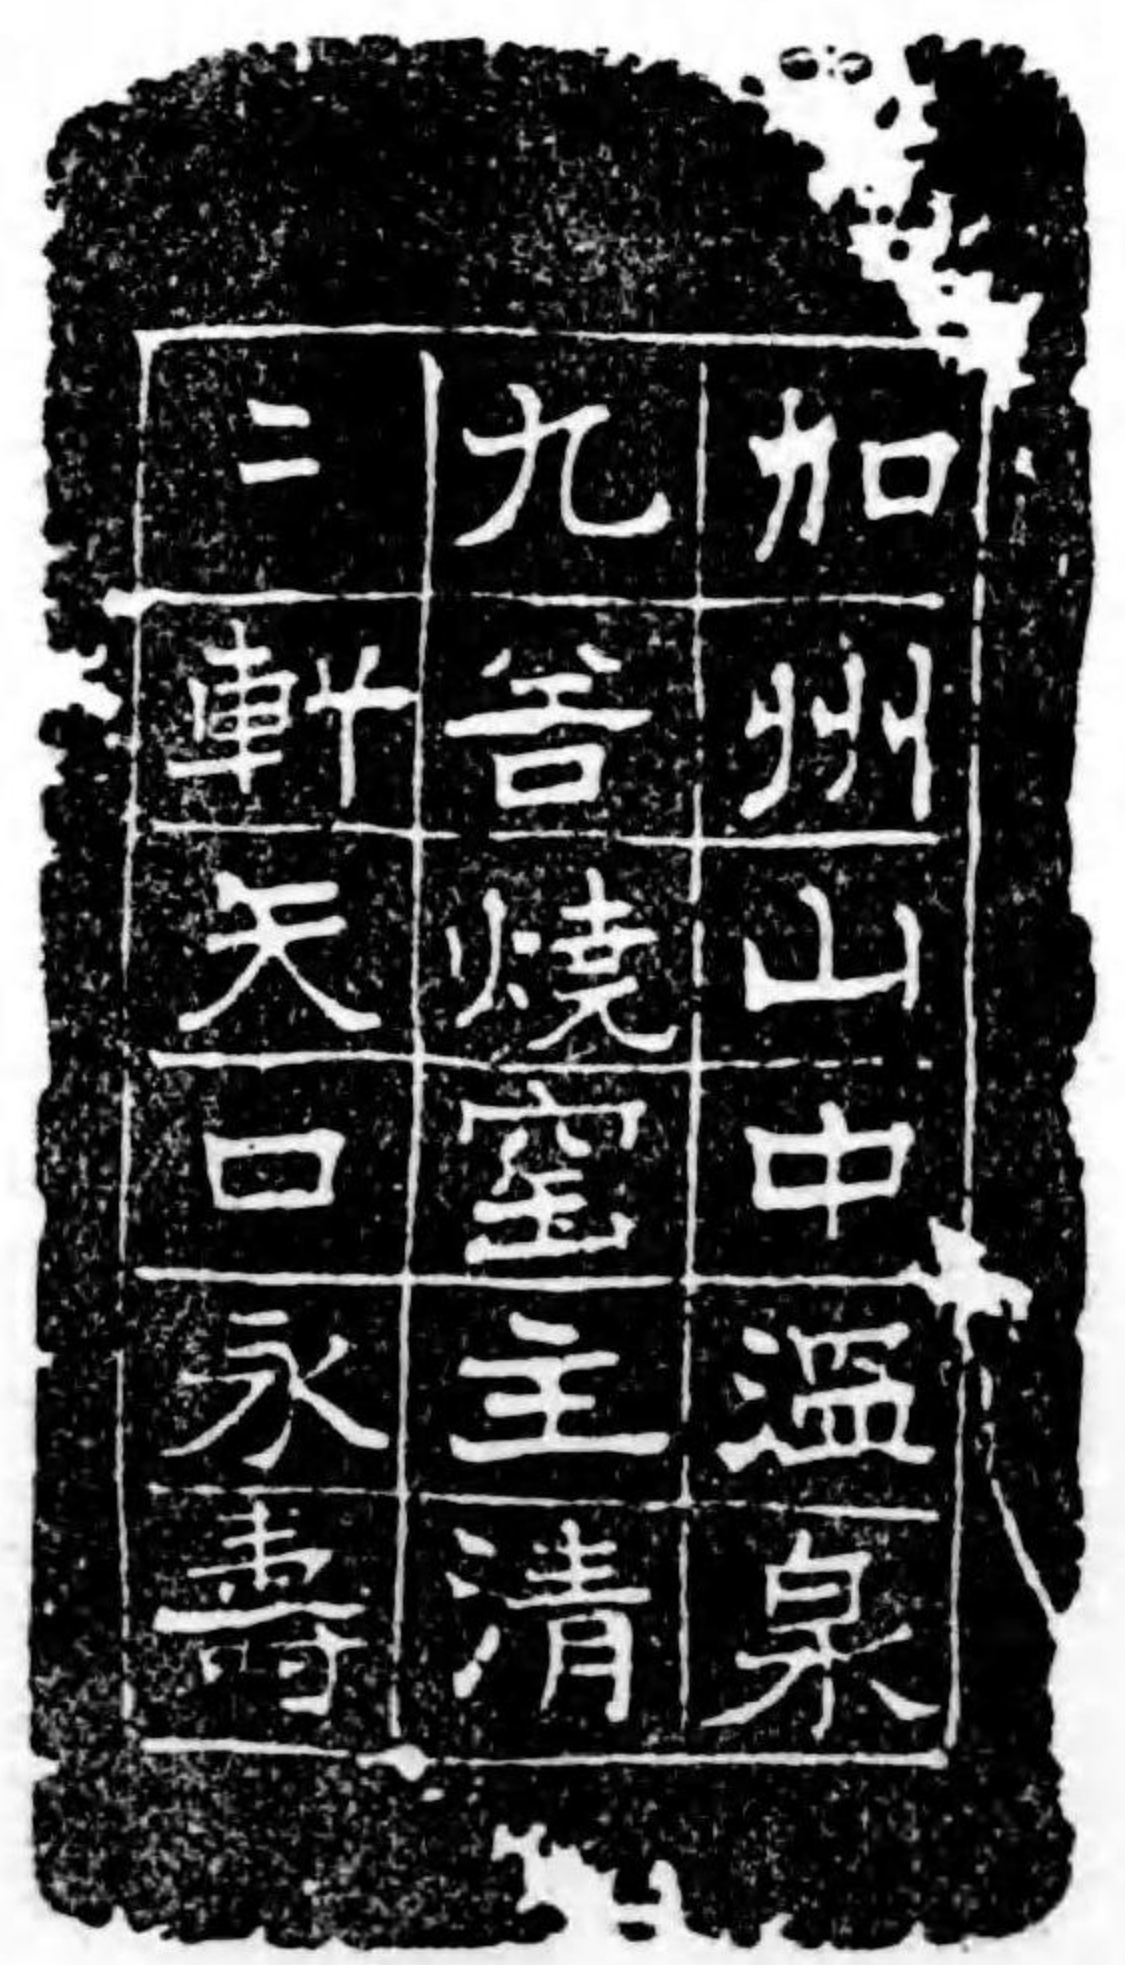 加州山中溫泉
九谷燒窑主清
二軒矢口永壽